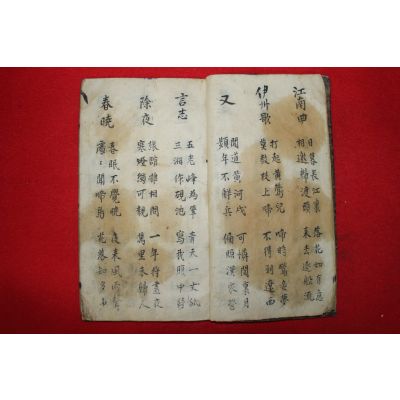 江南曲
日暮長江裏 落花如有意
相邀歸渡頭 來去逐船流
伊州歌
打起黃鶯兒 啼時驚妾夢
莫教枝上啼 不得到遼西
又
聞道黃河戍 可憐閨裏月
頻年不解兵 偏照漢家營
言志
五老峰為筆 青天一丈紙
三湘作硯池 寫我腹中詩
除夜
旅館誰相問 一年將盡夜
寒燈獨可親 萬里未歸人
春曉
春眠不覺曉 夜來風雨聲
處〻聞啼鳥 花落知多少